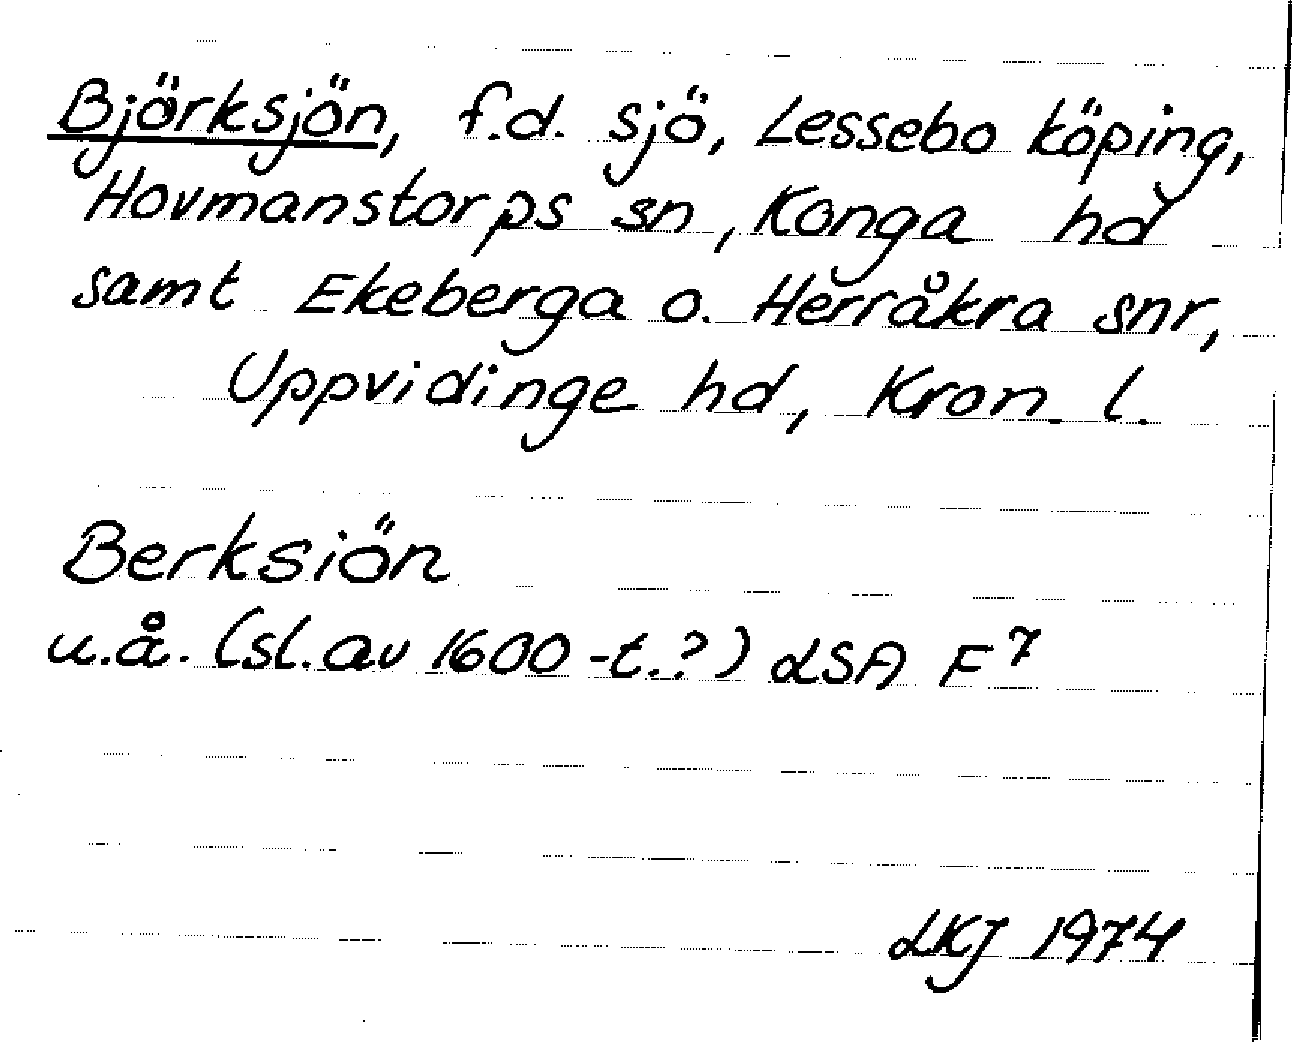 Björksjön, f.d. sjö, Lessebo köping,
Hovmanstorps sn, Konga hd
samt Ekeberga o. Herråkra snr,
Uppvidinge hd, Kron. l.
Berksiön
u.å. (sl. av 1600-t.?) LSA F7
LKJ 1974